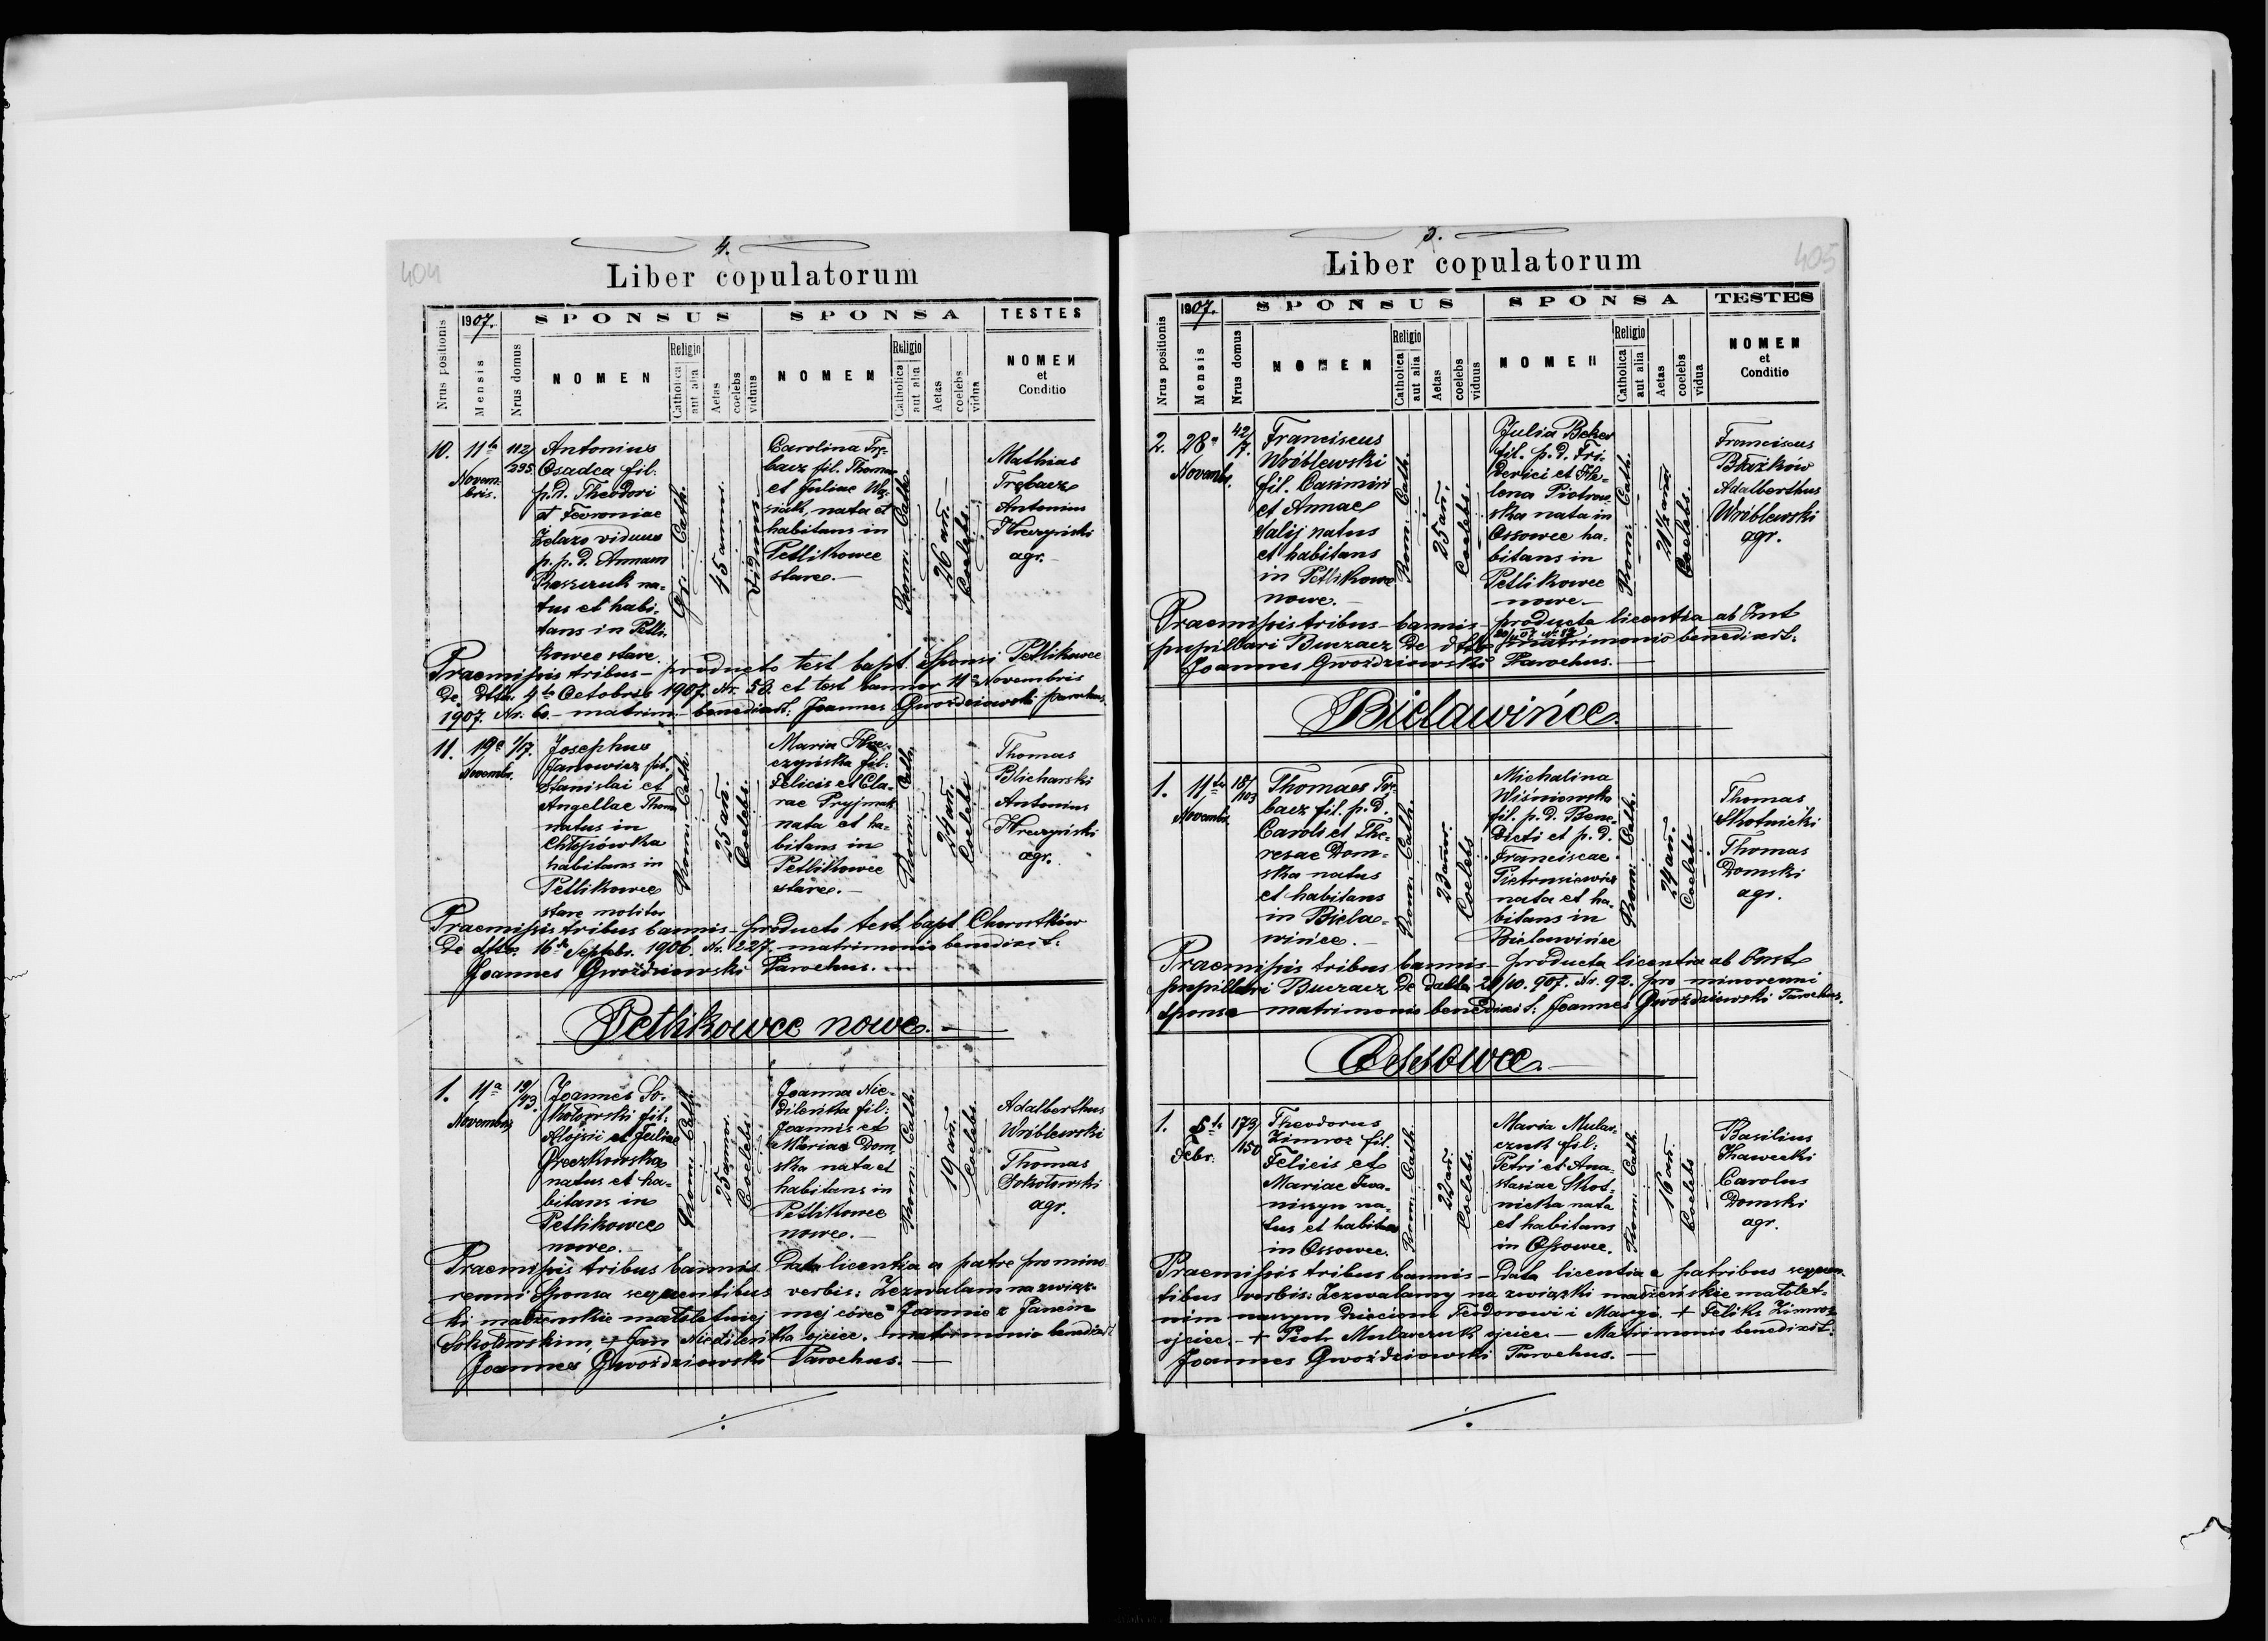 404
4.
Liber copulatorum
Nrus positionis
1907.
Mensis
Nrus domus
SPONSUS
NOMEN
Religio
Catholica
aut alia
Aetas
coelebs
viduus
SPONSA
NOMEN
Religio
Catholica
aut alia
Aetas
coelebs
vidua
TESTES
NOMEN
et
Conditio
10.
11ta
Novem-
bris.
112/
295.
Antonius
Osadca fil.
p.d. Theodori
et Fevroniae
Żelazo viduus
p. p. d. Annam
na-
tus et habi-
tans in Petli-
kowce stare.
Gr. Cath.
45 annor.
Viduus.
Carolina Trę-
bacz fil. Thomae
et Juliae Wo-
siak, nata et
habitans in
Petlikowce
stare.
Rom. Cath.
26 an.
Coelebs.
Mathias
Trębacz
Antonius
Hreczyński
agr.
Praemissis tribus - producto test bapt. Sponsi Petlikowce
de dtto. 4ta Octobris 1907. Nr. 58. et test bannor 11a Novembris
1907. Nr. 60. - matrim. benedixit: Joannes Gwoździowski parochus.
11.
19a
Novembr.
1/17.
Josephus
Janowicz fil.
Stanislai et
Angellae Thoma
natus in
Chłopówka
habitans in
Petlikowce
stare molitor
Rom. Cath.
25 an.
Coelebs.
Maria Hre-
czyńska fil.
Felicis et Cla-
rae Pryjmak
nata et ha-
bitans in
Petlikowce
stare.
Rom. Cath.
24 an.
Coelebs
Thomas
Blicharski
Antonius
Hreczyński
agr.
Praemissis tribus bannis - producto test. bapt. Chorostków
de dtto. 16a Septebr. 1906. Nr. 227. matrimonio benedixit:
Joannes Gwoździowski Parochus.
Petlikowce nowe.
1.
11a
Novembris
19/
93.
Joannes So-
kołowski fil.
Alojsii et Juliae
Greczkowska
natus et ha-
bitans in
Petlikowce
nowe.
Rom. Cath.
25 annor.
Coelebs.
Joanna Nie-
dileńka fil.
Joannis et
Mariae Dom-
ska nata et
habitans in
Petlikowce
nowe.
Rom. Cath.
19 an.
Coelebs.
Adalberthus
Wróblewski
Thomas
Sokołowski
agr.
Praemissis tribus bannis. Data licentia a patre pro mino-
renni Sponsa sequentibus verbis: Zezwalam na związ-
ki małżenskie małoletniej mej córce Joannie z Janem
Sokołowskim, + Jan Niedileńka ojciec. matrimonio benedixit
Joannes Gwoździowski Parochus.
405
5.
Liber copulatorum
Nrus positionis
1907.
Mensis
Nrus domus
SPONSUS
NOMEN
Religio
Catholica
aut alia
Aetas
coelebs
viduus
SPONSA
NOMEN
Religio
Catholica
aut alia
Aetas
coelebs
vidua
TESTES
NOMEN
et
Conditio
2.
28a
Novembr.
42/
17.
Franciscus
Wróblewski
fil. Casimiri
et Annae
Salij natus
et habitans
in Petlikowce
nowe.
Rom. Cath.
25 an.
Coelebs.
Julia Beker
fil. p. d. Fri-
derici et He-
lena Piotrow-
ska nata in
Ossowce ha-
bitans in
Petlikowce
nowe.
Rom. Cath.
21½ anor.
Coelebs.
Franciscus
Błażków
Adalberthus
Wróblewski
agr.
Praemissis tribus bannis - producta licentia ab Inst
pupillari Buczacz de dtto matrimonio benedixit:
Joannes Gwoździowski Parochus.
Bielawińce.
1.
11ta
Novembr.
18/
103
Thomas Trę-
bacz fil. p. d.
Caroli et The-
resae Dom-
ska natus
et habitans
in Biela-
wińce.
Rom. Cath.
23 annor.
Coelebs
Michalina
Wiśniowska
fil. p. d. Bene-
dicti et p. d.
Franciscae
Pietrusiewicz
nata et ha-
bitans in
Bielawińce
Rom. Cath.
24 an.
Coelebs
Thomas
Skotnicki
Thomas
Domski
agr.
Praemissis tribus bannis - producta licentia ab Inst
pupillari Buczacz de datto 28/10. 907. Nr. 92. pro minorenni
sponsa matrimonio benedixit: Joannes Gwoździowski Parochus.
Ossowce.
1.
5ta
Febr.
173/
150
Theodorus
Zimroz fil.
Felicis et
Mariae Iwa-
niszyn na-
tus et habitans
in Ossowce.
Rom. Cath.
22 an.
Coelebs.
Maria Mular-
czuk fil.
Petri et Ana-
stasiae Skot-
nicka nata
et habitans
in Ossowce.
Rom. Cath.
16 an.
Coelebs
Basilius
Hawecki
Carolus
Domski
agr.
Praemissis tribus bannis - Data licentia a patribus sequen-
tibus verbis: Zezwalamy na związki małżeńskie małolet-
nim naszym dzieciom Teodorowi i Maryi. + Feliks Zimroz
ojciec. + Piotr Mularczuk ojciec. - Matrimonio benedixit:
Joannes Gwoździowski Parochus.